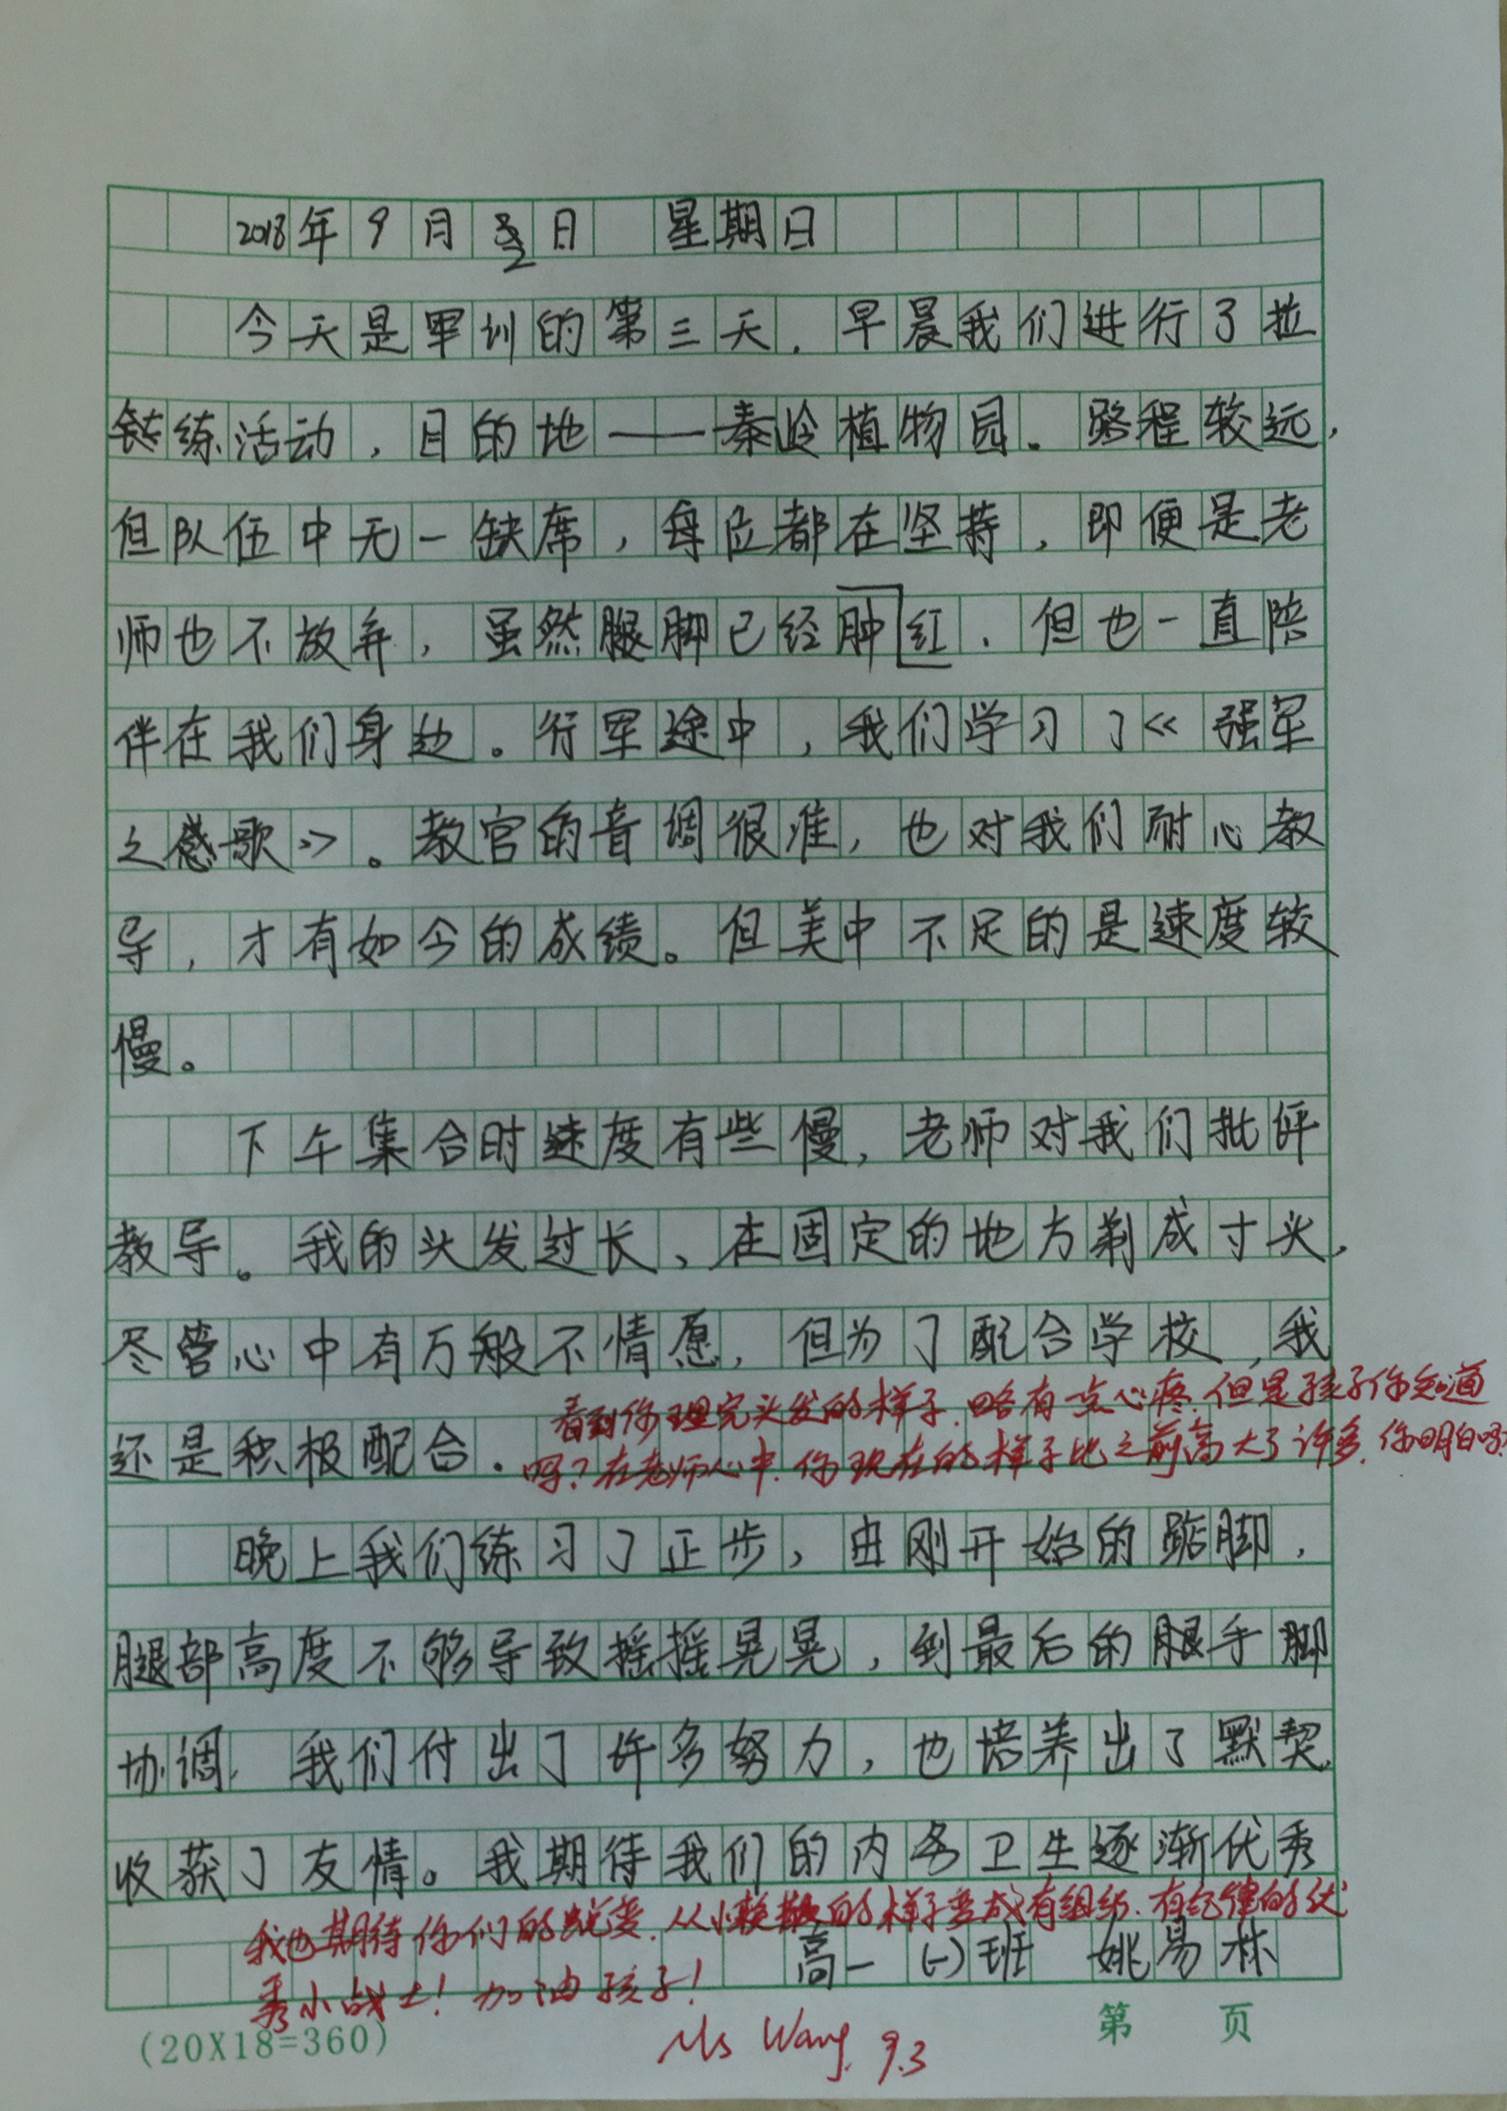 2018年9月2日 星期日
今天是军训的第三天.早晨我们进行了拉
练活动,目的地——秦岭植物园。路程较远,
但队伍中无一缺席,每位都在坚持,即便是老
师也不放弃,虽然腿脚已经肿红.但也一直陪
伴在我们身边。行军途中,我们学习了《强军
之感歌》。教官的音调很准,也对我们耐心教
导,才有如今的成绩。但美中不足的是速度较
慢。
下午集合时速度有些慢,老师对我们批评
教导。我的头发过长、在固定的地方剃成寸头,
尽管心中有万般不情愿,但为了配合学校,我
还是积极配合.
看到你理完头发的样子.略有点心疼.但是孩子你知道
吗?在老师心中.你现在的样子比之前高大了许多.你明白吗?
晚上我们练习了正步,由刚开始的踮脚,
腿部高度不够导致摇摇晃晃,到最后的腿手脚
协调,我们付出了许多努力,也培养出了默契,
收获了友情。我期待我们的内务卫生逐渐优秀
我也期待你们的蜕变.从小懒散的样子变成有组织.有纪律的优
秀小战士!加油孩子!
高一(一)班 姚易林
(20X18=360)
第 页
Ms Wang. 9.3